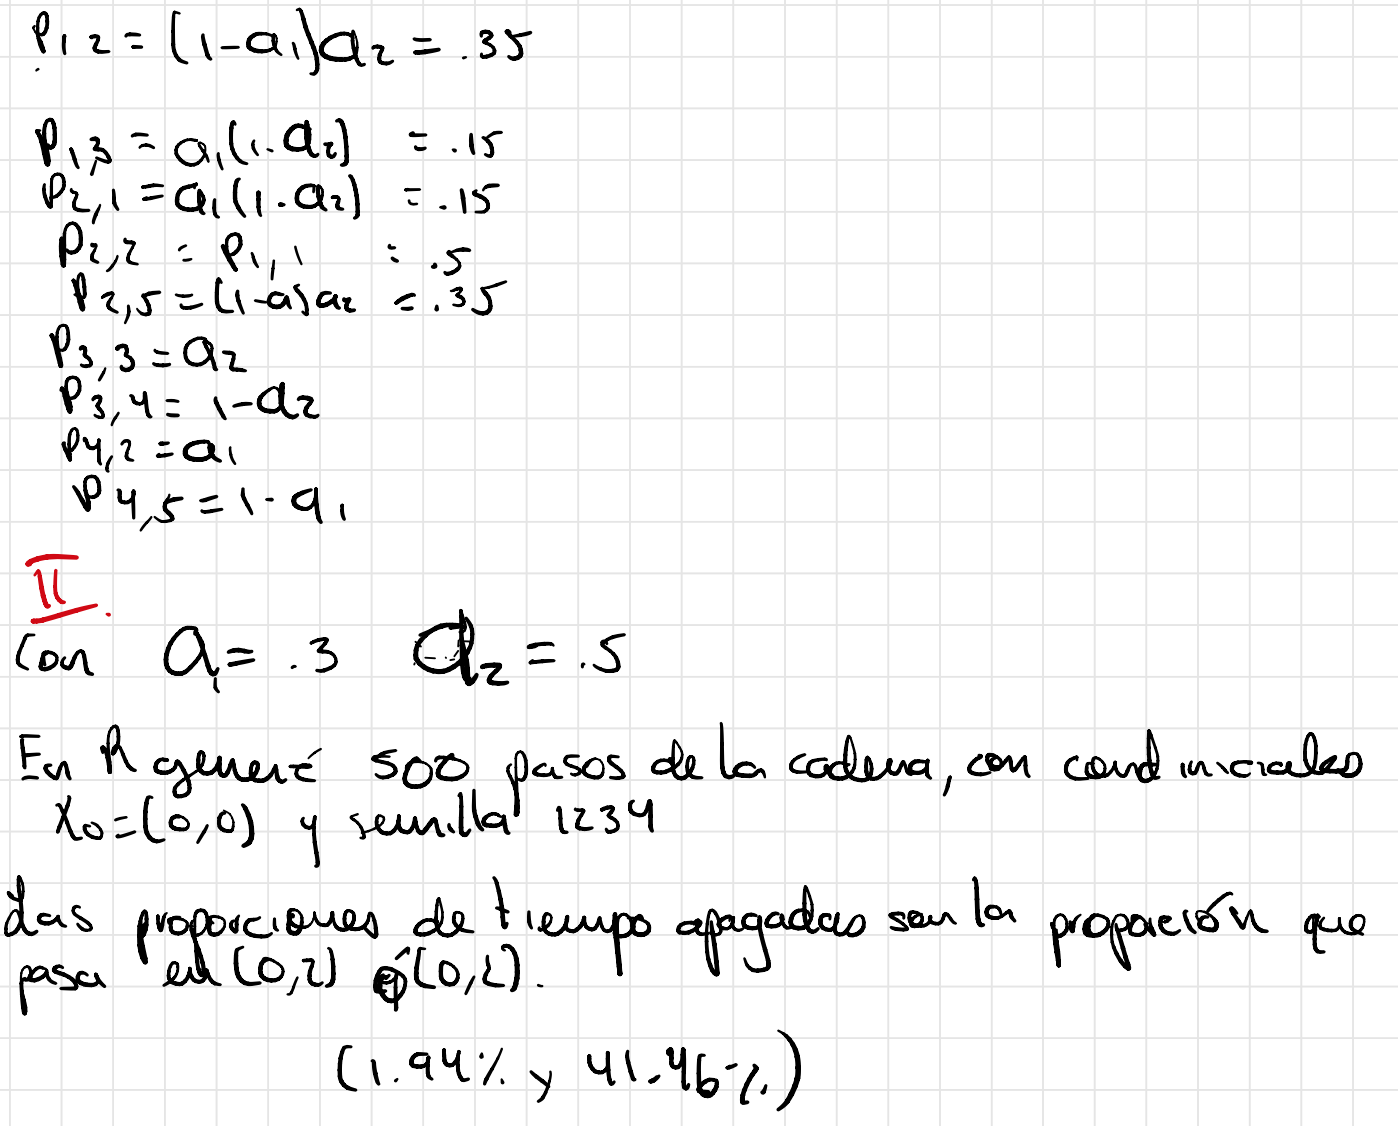 P12 = (1-a1)a2 = .35
P1,3 = a1(1-a2) = .15
P2,1 = a1(1-a2) = .15
P2,2 = P1,1 = .5
P2,5 = (1-a)a2 = .35
P3,3 = a2
P3,4 = 1-a2
P4,2 = a1
P4,5 = 1-a1
II.
Con a1 = .3 a2 = .5
En R generé 500 pasos de la cadena, con cond iniciales
X0=(0,0) y semilla 1234
Las proporciones de tiempo apagadas son la proporción que
pasa en (0,2) ó (0,2).
(1.94% y 41.46%)